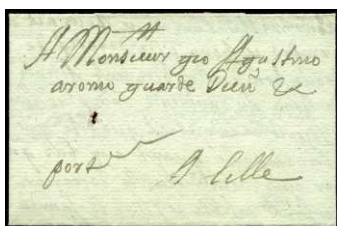 A Monsieur gio Agostino
aromo guarde Dieu &
port A Lille